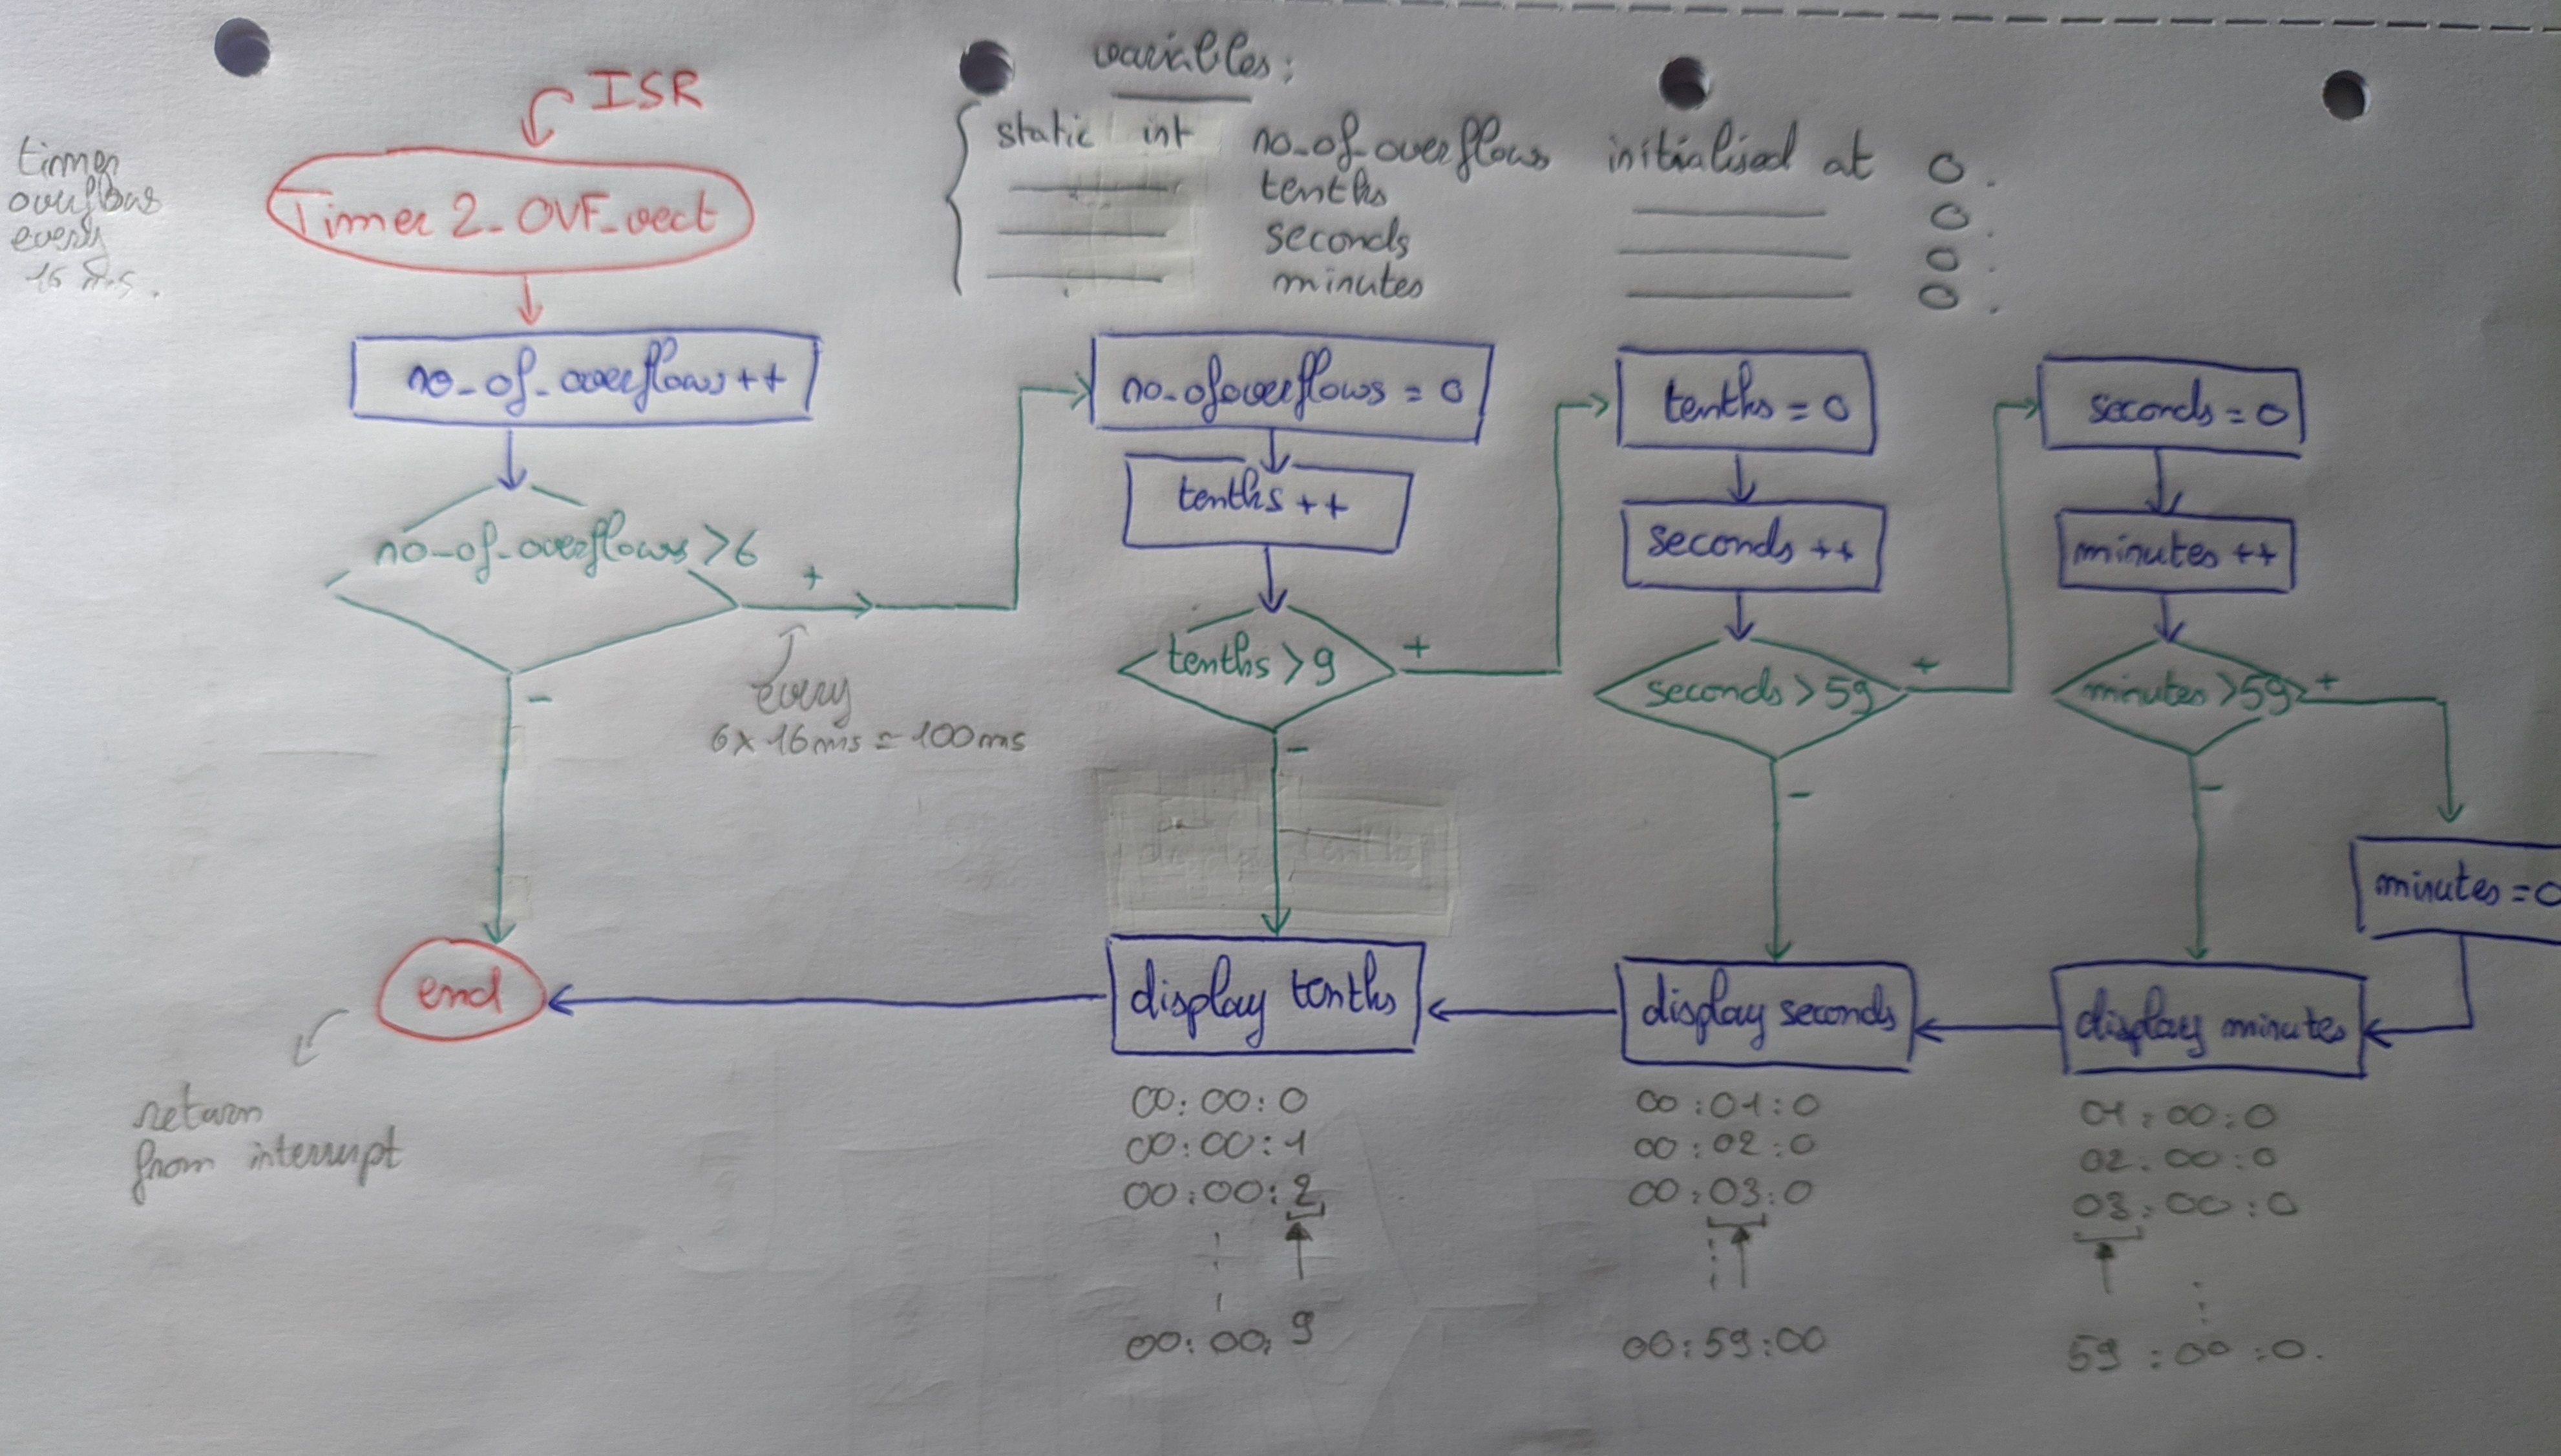 variables:
ISR
static int no_of_overflows initialised at 0.
tenths 0.
seconds 0.
minutes 0.
timer
overflows
every
16 ms.
Timer 2_OVF_vect
no_of_overflows++
no_of_overflows >6
+
-
every
6 x 16ms = 100ms
no_ofoverflows = 0
tenths ++
tenths > 9
+
-
tenths = 0
seconds ++
seconds > 59
+
-
seconds = 0
minutes ++
minutes >59
+
-
minutes = 0
end
display tenths
display seconds
display minutes
return
from interrupt
00:00:0
00:00:1
00:00:2
00:00:9
00:01:0
00:02:0
00:03:0
00:59:00
01:00:0
02:00:0
03:00:0
59:00:0.